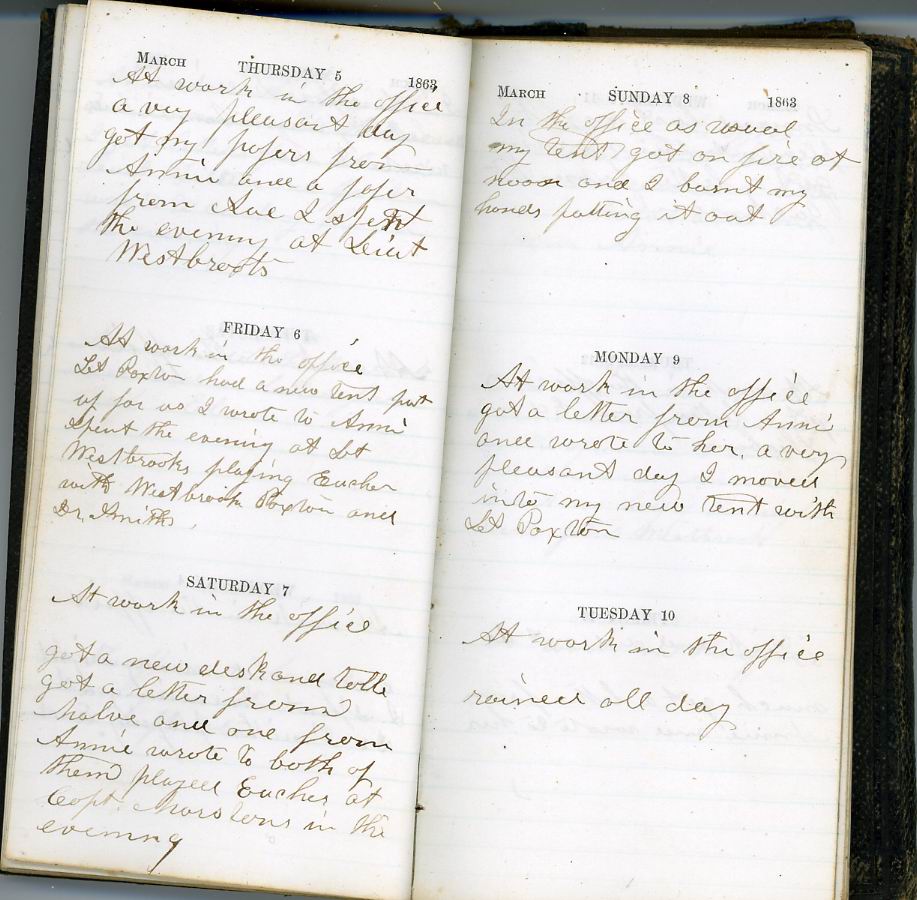 March THURSDAY 5 1863
At work in the office
a very pleasant day
got my papers from
Annie and a paper
from Sue I spent
the evening at Leiut
Westbrooks
FRIDAY 6
At work in the office
Lt Paxton had a new tent put
up for us I wrote to Annie
Spent the evening at Lt
Westbrooks playing Eucher
with Westbrook Paxton and
Dr. Smith
SATURDAY 7
At work in the office
got a new desk and
got a letter from
and one from
Annie wrote to both of
them played Eucher at
Capt. Marstens in the
evening
March SUNDAY 8 1863
In the office as usual
my tent got on fire at
noon and I burnt my
hands putting it out
MONDAY 9
At work in the office
got a letter from Annie
and wrote to her. a very
pleasant day I moved
into my new tent with
Lt Paxton
TUESDAY 10
At work in the office
rained all day